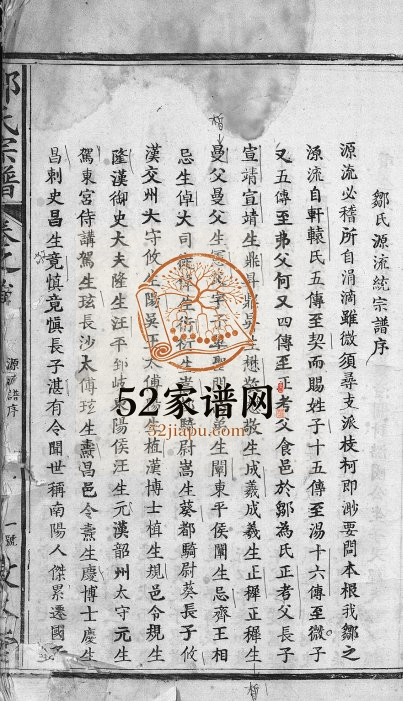 鄒氏源流統宗譜序
源流必稽所自涓滴雖微須尋支派枝柯即渺要問本根我鄒之
源流自軒轅氏五傳至契而賜姓子十五傳至湯十六傳至微子
又五傳至弗父何又四傳至正考父食邑於鄒為氏正考父長子
宣靖宣靖生鼎 生懋 懋 生成義成義生正禪正禪生
曼父曼父生 生闡東平侯闡生忌齊王相
忌生倬大司 生 衍生 騎尉嵩生葵都騎尉葵長子攸
漢交州大守攸生陽吳王大傅 生植漢博士植生規邑令規生
隆漢御史大夫隆生汪平 岐 陽侯汪生元漢韶州太守元生
駕東宮侍講駕生玹長沙太傅玹生燾昌邑令燾生慶博士慶生
昌刺史昌生竟慎竟慎長子湛有令聞世稱南陽人傑累遷國子
鄒氏宗譜 卷之
源流譜序
一號
52家谱网
52jiapu.com